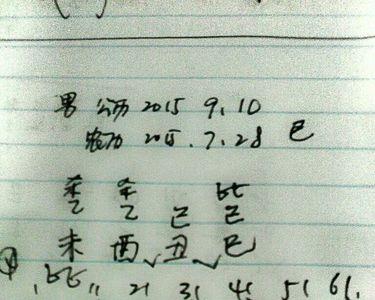 男 公历 2015 9.10
农历 2015.7.28 巳
杀 杀 比
乙 乙 己 己
未 酉 丑 巳
21 31 41 51 61